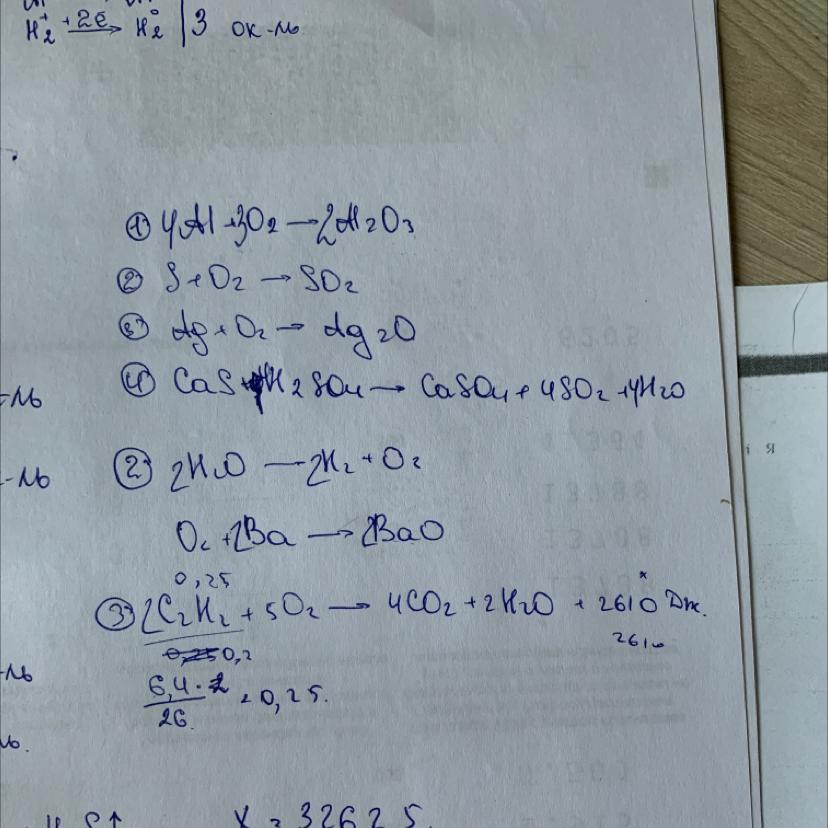 H₂⁺ +2e̅→ H₂⁰ | 3 ок-ль
① 4Al + 3O₂ → 2Al₂O₃
② S + O₂ → SO₂
③ Ag + O₂ → Ag₂O
-ль ④ CaS + H₂SO₄ → CaSO₄ + 4SO₂ + 4H₂O
-ль ② 2H₂O → 2H₂ + O₂
O₂ + 2Ba → 2BaO
0,25 x
③ 2C₂H₂ + 5O₂ → 4CO₂ + 2H₂O + 2610 Дж.
0,25 0,2 2610
-ль 6,4 · 2
26. = 0,25.
ль.
X = 32625.